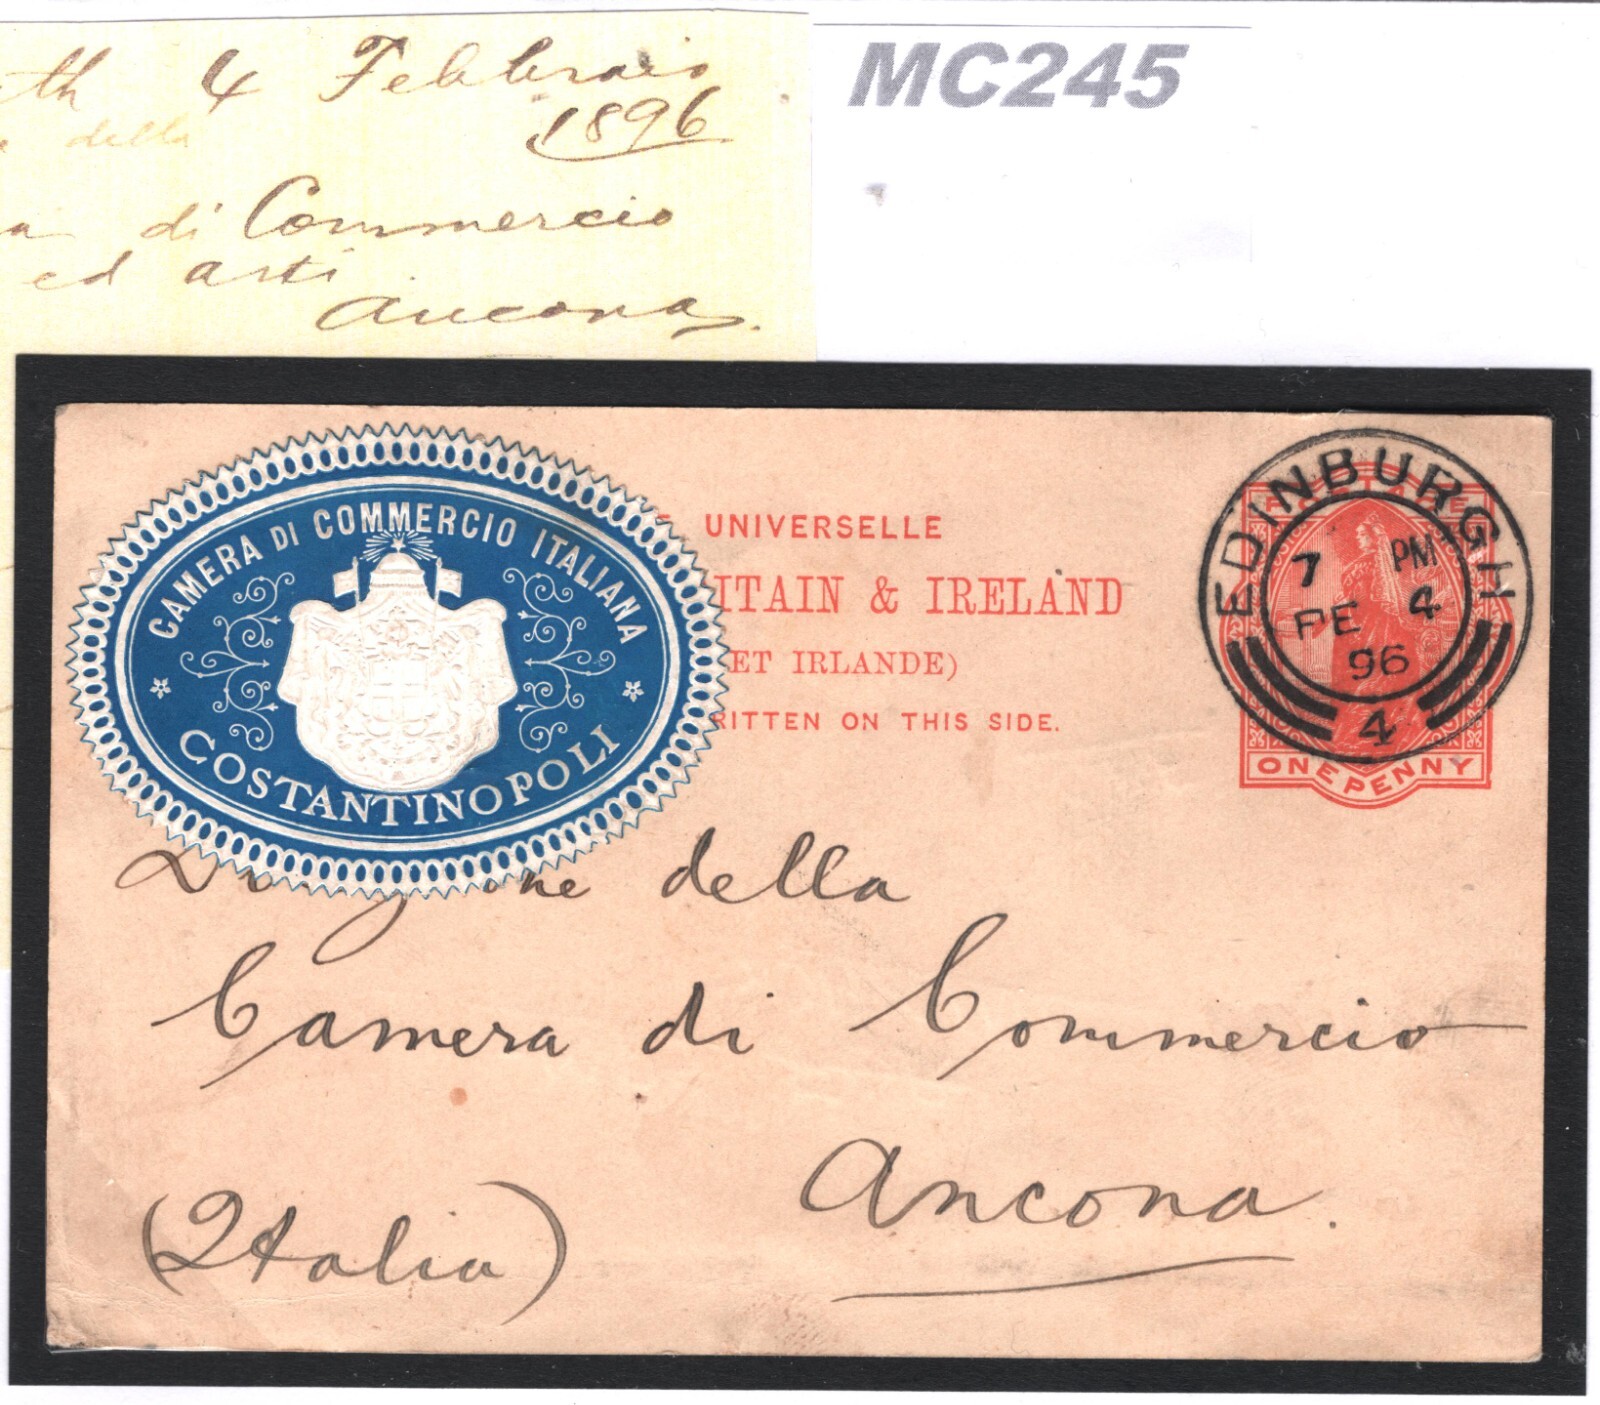 th 4 Febbraio
1896
della
di Commercio
ed arti
Ancona.
MC245
CAMERA DI COMMERCIO ITALIANA
COSTANTINOPOLI
UNIVERSELLE
ITAIN & IRELAND
ET IRLANDE)
RITTEN ON THIS SIDE.
EDINBURGH
7 PM
FE 4
96
4
ONE PENNY
della
Camera di Commercio
Ancona.
(Italia)